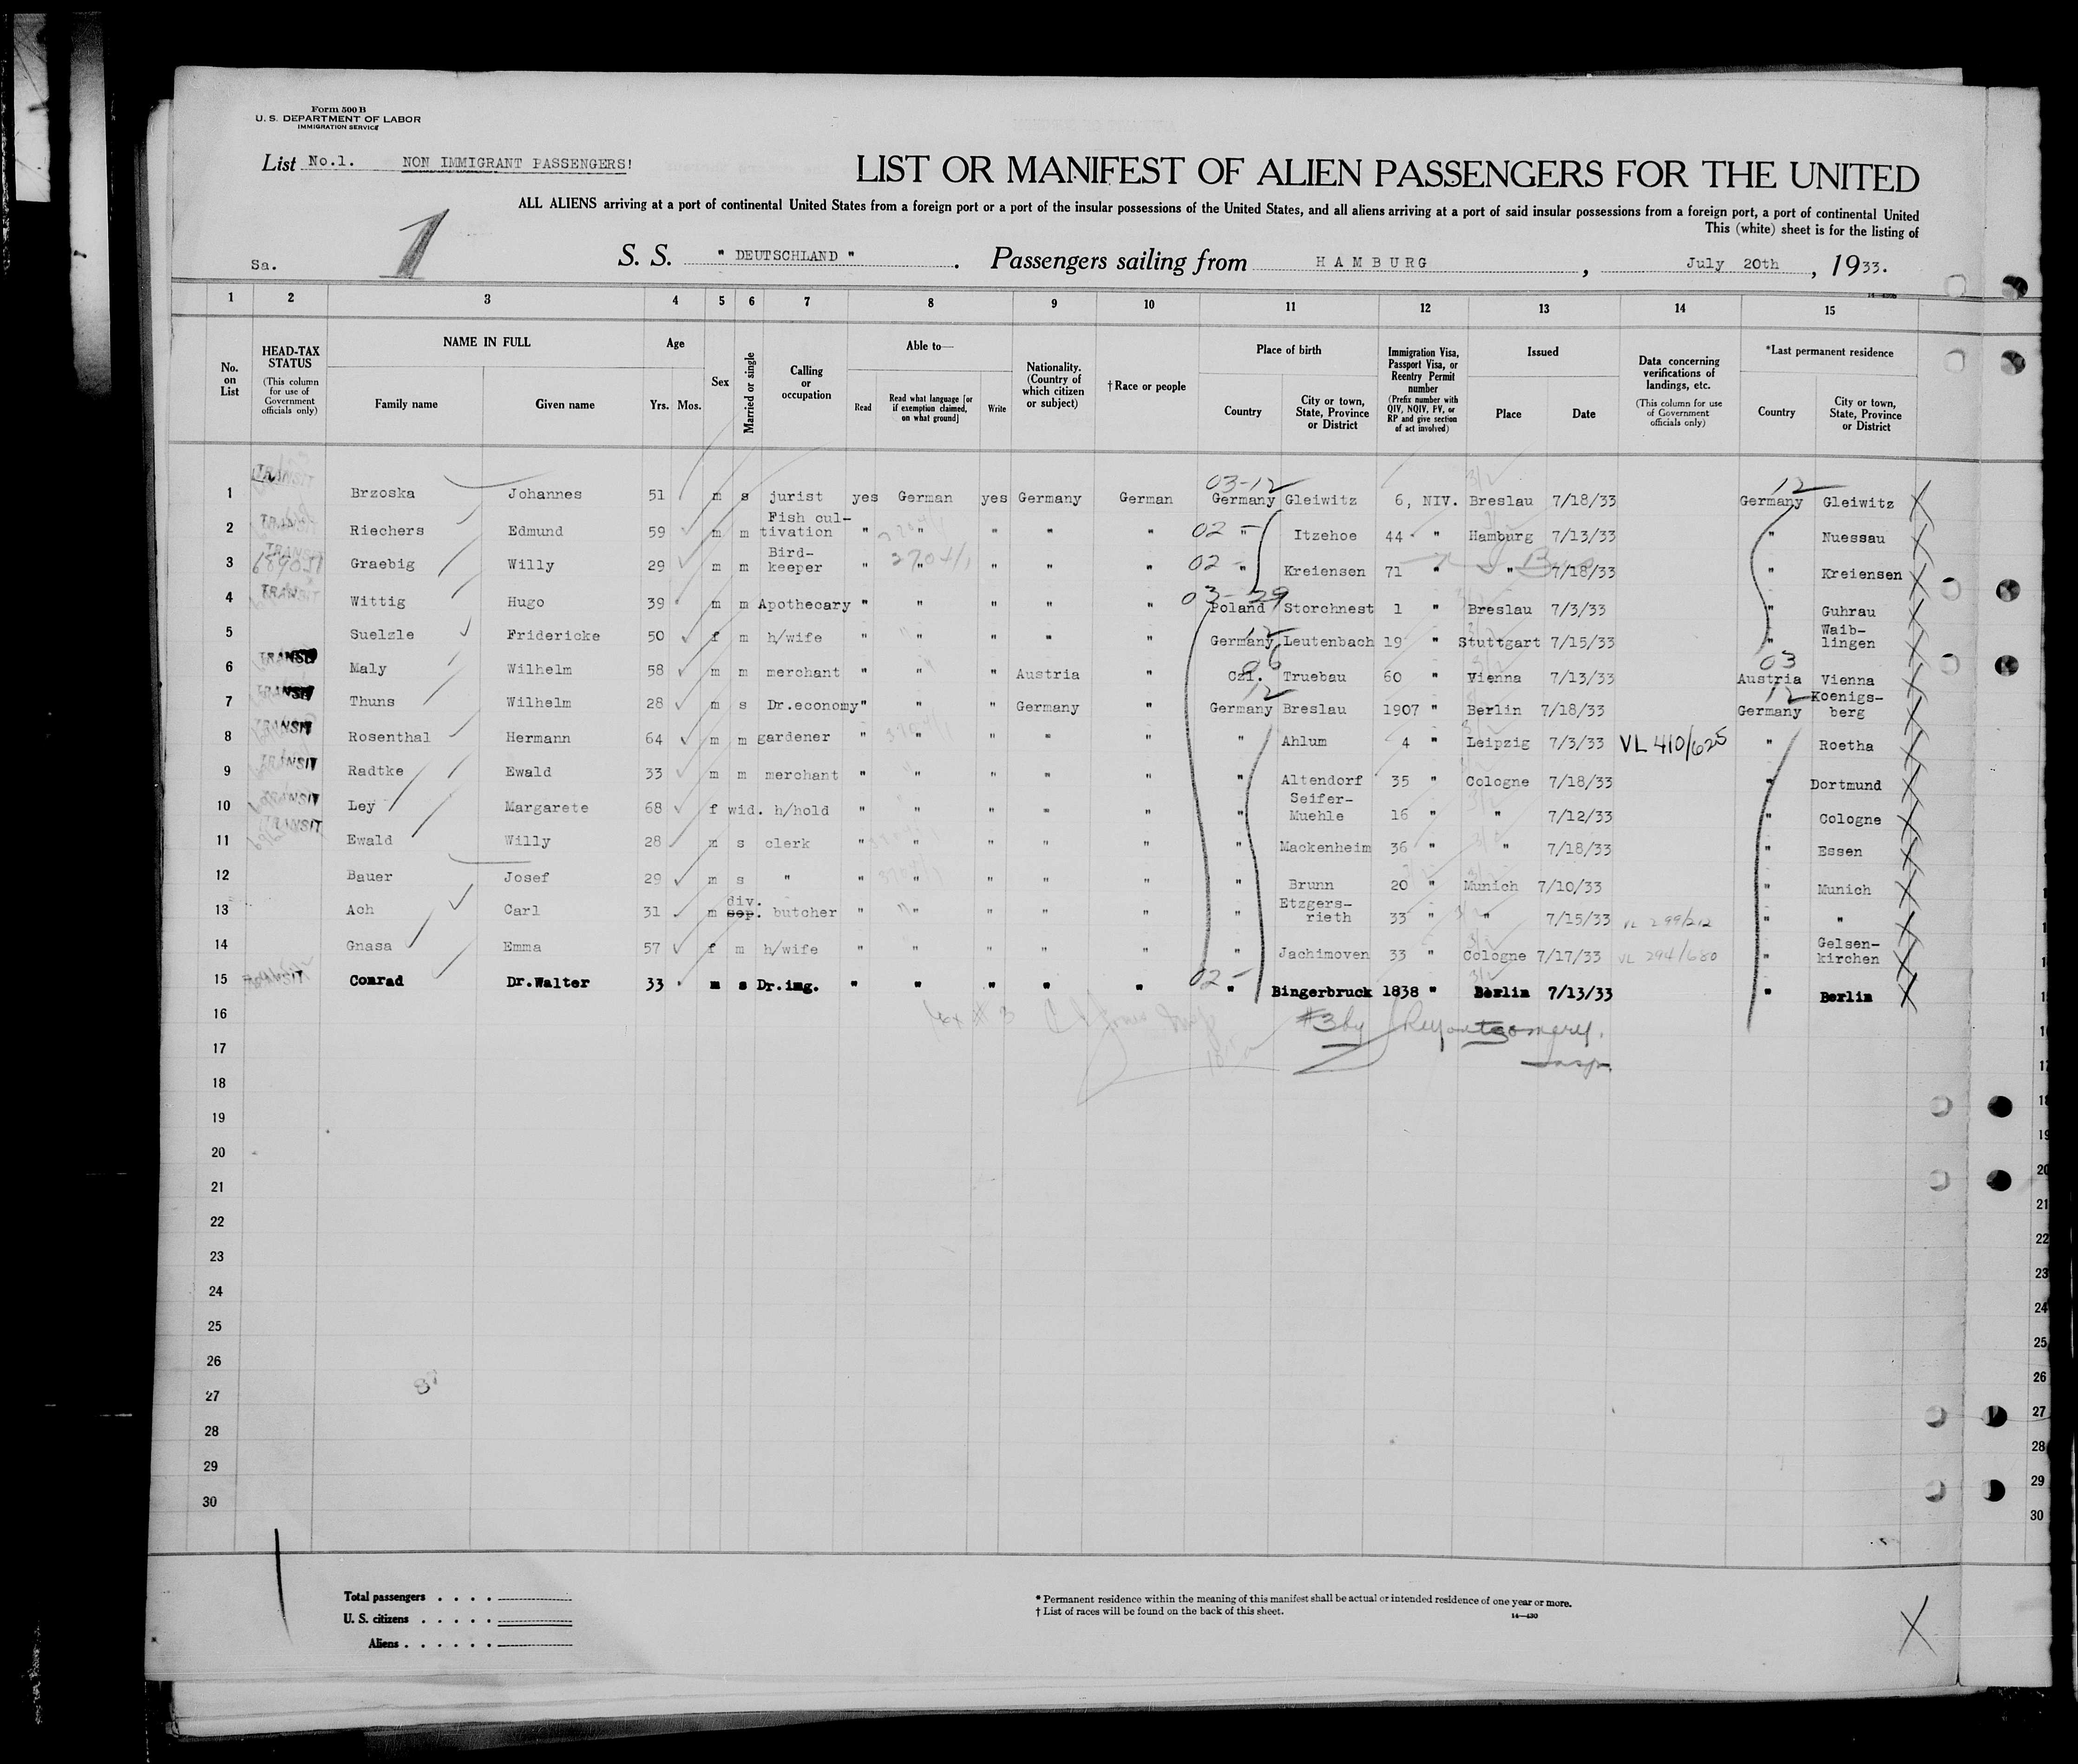 Form 500 B
U. S. DEPARTMENT OF LABOR
IMMIGRATION SERVICE
List No.1. NON IMMIGRANT PASSENGERS!
LIST OR MANIFEST OF ALIEN PASSENGERS FOR THE UNITED
ALL ALIENS arriving at a port of continental United States from a foreign port or a port of the insular possessions of the United States, and all aliens arriving at a port of said insular possessions from a foreign port, a port of continental United
This (white) sheet is for the listing of
Sa. 1 S. S. " DEUTSCHLAND " . Passengers sailing from HAMBURG , July 20th , 1933.
1 2 3 4 5 6 7 8 9 10 11 12 13 14 15
No. on List
HEAD-TAX STATUS (This column for use of Government officials only)
NAME IN FULL
Family name
Given name
Age
Yrs. Mos.
Sex
Married or single
Calling or occupation
Able to—
Read
Read what language [or if exemption claimed, on what ground]
Write
Nationality. (Country of which citizen or subject)
†Race or people
Place of birth
Country
City or town, State, Province or District
Immigration Visa, Passport Visa, or Reentry Permit number (Prefix number with QIV, NQIV, PV, or RP and give section of act involved)
Issued
Place
Date
Data concerning verifications of landings, etc. (This column for use of Government officials only)
*Last permanent residence
Country
City or town, State, Province or District
03-12 12
1 TRANSIT Brzoska Johannes 51 m s jurist yes German yes Germany German Germany Gleiwitz 6, NIV. Breslau 7/18/33 Germany Gleiwitz
2 TRANSIT Riechers Edmund 59 m m Fish cultivation " " " " " 02 - " Itzehoe 44 " Hamburg 7/13/33 " Nuessau
3 TRANSIT Graebig Willy 29 m m Bird-keeper " " " " " 02 - " Kreiensen 71 " " 7/18/33 " Kreiensen
4 TRANSIT Wittig Hugo 39 m m Apothecary " " " " " 03-29 Poland Storchnest 1 " Breslau 7/3/33 " Guhrau
5 Suelzle Fridericke 50 f m h/wife " " " " " 12 Germany Leutenbach 19 " Stuttgart 7/15/33 " Waib-lingen
6 TRANSIT Maly Wilhelm 58 m m merchant " " " Austria " 06 Czl. Truebau 60 " Vienna 7/13/33 03 Austria Vienna
7 TRANSIT Thuns Wilhelm 28 m s Dr.economy " " " Germany " 12 Germany Breslau 1907 " Berlin 7/18/33 12 Germany Koenigs-berg
8 TRANSIT Rosenthal Hermann 64 m m gardener " " " " " " Ahlum 4 " Leipzig 7/3/33 VL 410/625 " Roetha
9 TRANSIT Radtke Ewald 33 m m merchant " " " " " " Altendorf 35 " Cologne 7/18/33 " Dortmund
10 TRANSIT Ley Margarete 68 f wid. h/hold " " " " " " Seifer-Muehle 16 " " 7/12/33 " Cologne
11 TRANSIT Ewald Willy 28 m s clerk " " " " " " Mackenheim 36 " " 7/18/33 " Essen
12 Bauer Josef 29 m s " " " " " " " Brunn 20 " Munich 7/10/33 " Munich
13 Ach Carl 31 m div. sep. butcher " " " " " " Etzgers-rieth 33 " " 7/15/33 VL 299/212 " "
14 Gnasa Emma 57 f m h/wife " " " " " " Jachimoven 33 " Cologne 7/17/33 VL 294/680 " Gelsen-kirchen
15 TRANSIT Conrad Dr.Walter 33 m s Dr.ing. " " " " " 02 - " Bingerbruck 1838 " Berlin 7/13/33 " Berlin
16 #3 by Montgomery.
17 Insp.
18
19
20
21
22
23
24
25
26
27
28
29
30
Total passengers
U. S. citizens
Aliens
* Permanent residence within the meaning of this manifest shall be actual or intended residence of one year or more.
† List of races will be found on the back of this sheet.
14—430